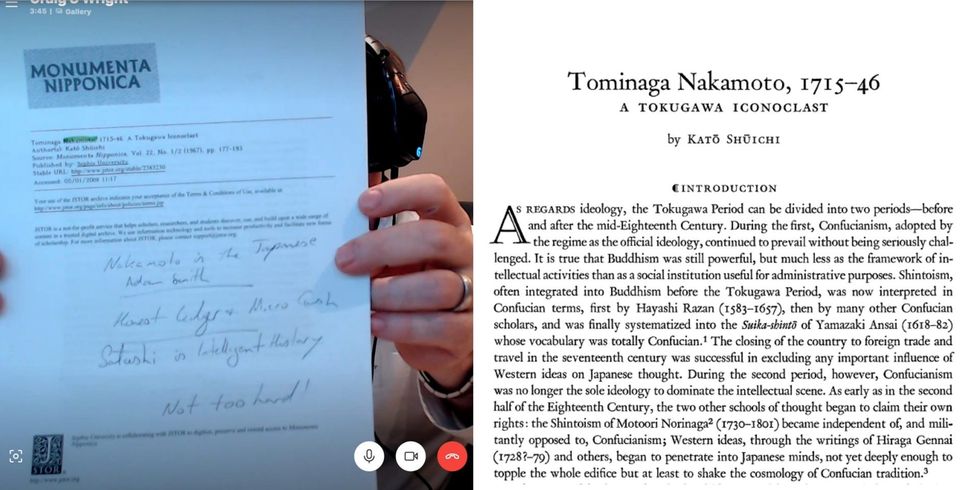 Craig S Wright
3:45 | Gallery
MONUMENTA
NIPPONICA
Tominaga Nakamoto, 1715-46. A Tokugawa Iconoclast
Author(s): Katō Shūichi
Source: Monumenta Nipponica, Vol. 22, No. 1/2 (1967), pp. 177-193
Published by: Sophia University
Stable URL: http://www.jstor.org/stable/2383230
Accessed: 05/01/2008 11:17
Your use of the JSTOR archive indicates your acceptance of the Terms & Conditions of Use, available at
http://www.jstor.org/page/info/about/policies/terms.jsp
JSTOR is a not-for-profit service that helps scholars, researchers, and students discover, use, and build upon a wide range of
content in a trusted digital archive. We use information technology and tools to increase productivity and facilitate new forms
of scholarship. For more information about JSTOR, please contact support@jstor.org.
Nakamoto is the Japanese
Adam Smith
Honest ledger + Micro Cash
Satoshi is Intelligent History
Not too hard!
Sophia University is collaborating with JSTOR to digitize, preserve and extend access to Monumenta
Nipponica
JSTOR
http://www.jstor.org
Tominaga Nakamoto, 1715–46
A TOKUGAWA ICONOCLAST
by KATŌ SHŪICHI
INTRODUCTION
AS REGARDS ideology, the Tokugawa Period can be divided into two periods—before
and after the mid-Eighteenth Century. During the first, Confucianism, adopted by
the regime as the official ideology, continued to prevail without being seriously chal-
lenged. It is true that Buddhism was still powerful, but much less as the framework of in-
tellectual activities than as a social institution useful for administrative purposes. Shintoism,
often integrated into Buddhism before the Tokugawa Period, was now interpreted in
Confucian terms, first by Hayashi Razan (1583–1657), then by many other Confucian
scholars, and was finally systematized into the Suika-shintō of Yamazaki Ansai (1618–82)
whose vocabulary was totally Confucian.¹ The closing of the country to foreign trade and
travel in the seventeenth century was successful in excluding any important influence of
Western ideas on Japanese thought. During the second period, however, Confucianism
was no longer the sole ideology to dominate the intellectual scene. As early as in the second
half of the Eighteenth Century, the two other schools of thought began to claim their own
rights: the Shintoism of Motoori Norinaga² (1730–1801) became independent of, and mili-
tantly opposed to, Confucianism; Western ideas, through the writings of Hiraga Gennai
(1728?–79) and others, began to penetrate into Japanese minds, not yet deeply enough to
topple the whole edifice but at least to shake the cosmology of Confucian tradition.³